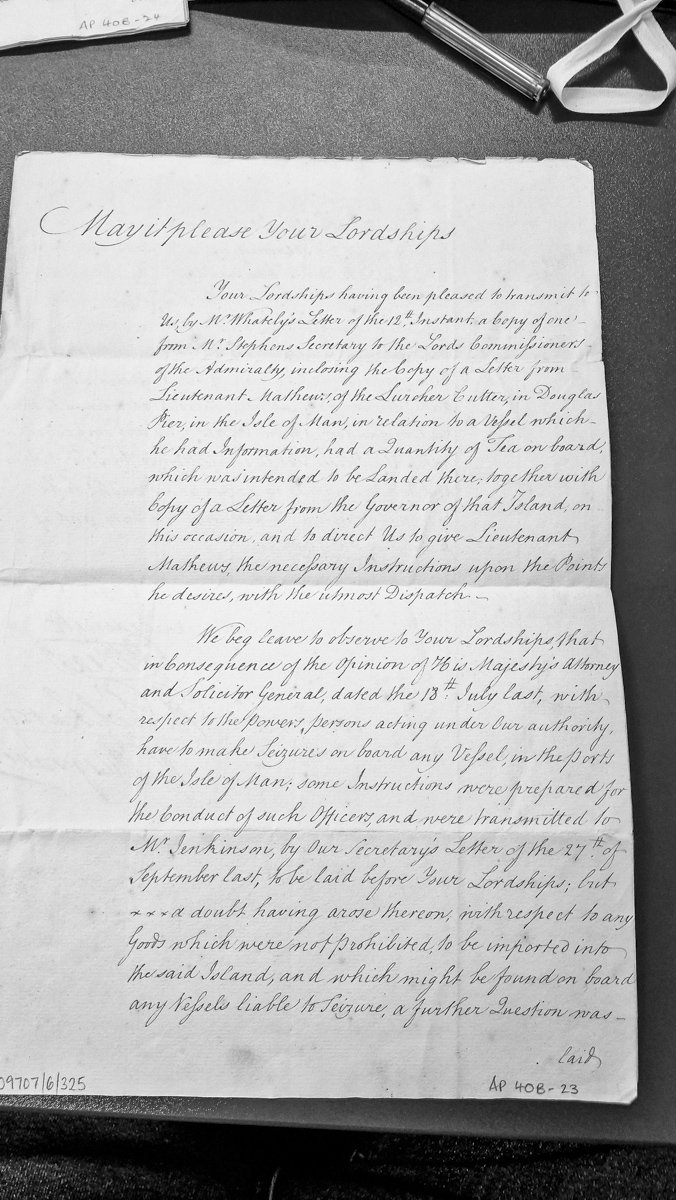 AP 40B-24
May it please Your Lordships
Your Lordships having been pleased to transmit to
Us, by Mr. Whately's Letter of the 12th. Instant, a Copy of one
from Mr. Stephens Secretary to the Lords Commissioners
of the Admiralty, inclosing the Copy of a Letter from
Lieutenant Mathews, of the Lurcher Cutter, in Douglas
Pier, in the Isle of Man, in relation to a Vessel which
he had Information, had a Quantity of Tea on board,
which was intended to be Landed there, together with
Copy of a Letter from the Governor of that Island, on
this occasion, and to direct Us to give Lieutenant
Mathews, the necessary Instructions upon the Points
he desires, with the utmost Dispatch.
We beg leave to observe to Your Lordships, that
in Consequence of the Opinion of His Majesty's Attorney
and Solicitor General, dated the 18th. July last, with
respect to the Powers, persons acting under Our authority,
have to make Seizures on board any Vessel, in the Ports
of the Isle of Man; some Instructions were prepared for
the Conduct of such Officers, and were transmitted to
Mr. Jenkinson, by Our Secretary's Letter of the 27th. of
September last, to be laid before Your Lordships; but
x x x a doubt having arose thereon, with respect to any
Goods which were not prohibited, to be imported into
the said Island, and which might be found on board
any Vessels liable to Seizure, a further Question was
laid
09707/6/325
AP 40B-23